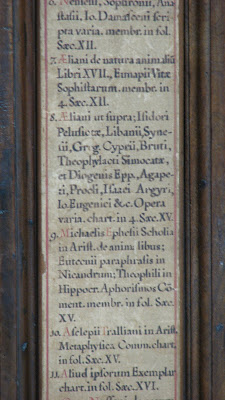 6. Nemesii, Sophronii, Ana-
stasii, Io. Damasceni scri
pta varia. membr. in fol.
Sæc. XII.
7. Æliani de natura animaliũ
Libri XVII., Eunapii Vitæ
Sophistarum. membr. in
4. Sæc. XII.
8. Æliani ut supra; Isidori
Pelusiotæ, Libanii, Syne-
ii, Greg. Cyprii, Bruti,
Theophylacti Simocatæ,
et Diogenis Epp., Agape-
ti, Procli, Isaaci Argyri,
Io. Eugenici &c. Opera
varia. chart. in 4. Sæc. XV.
9. Michaelis Ephesii Scholia
in Arist. de animalibus;
Eutecnii paraphrasis in
Nicandrum; Theophili in
Hippocr. Aphorismos Cõ-
ment. membr. in fol. Sæc.
XV.
10. Asclepii Tralliani in Arist.
Metaphysica Comm. chart.
in fol. Sæc. XV.
11. Aliud ipsorum Exemplar
chart. in fol. Sæc. XVI.